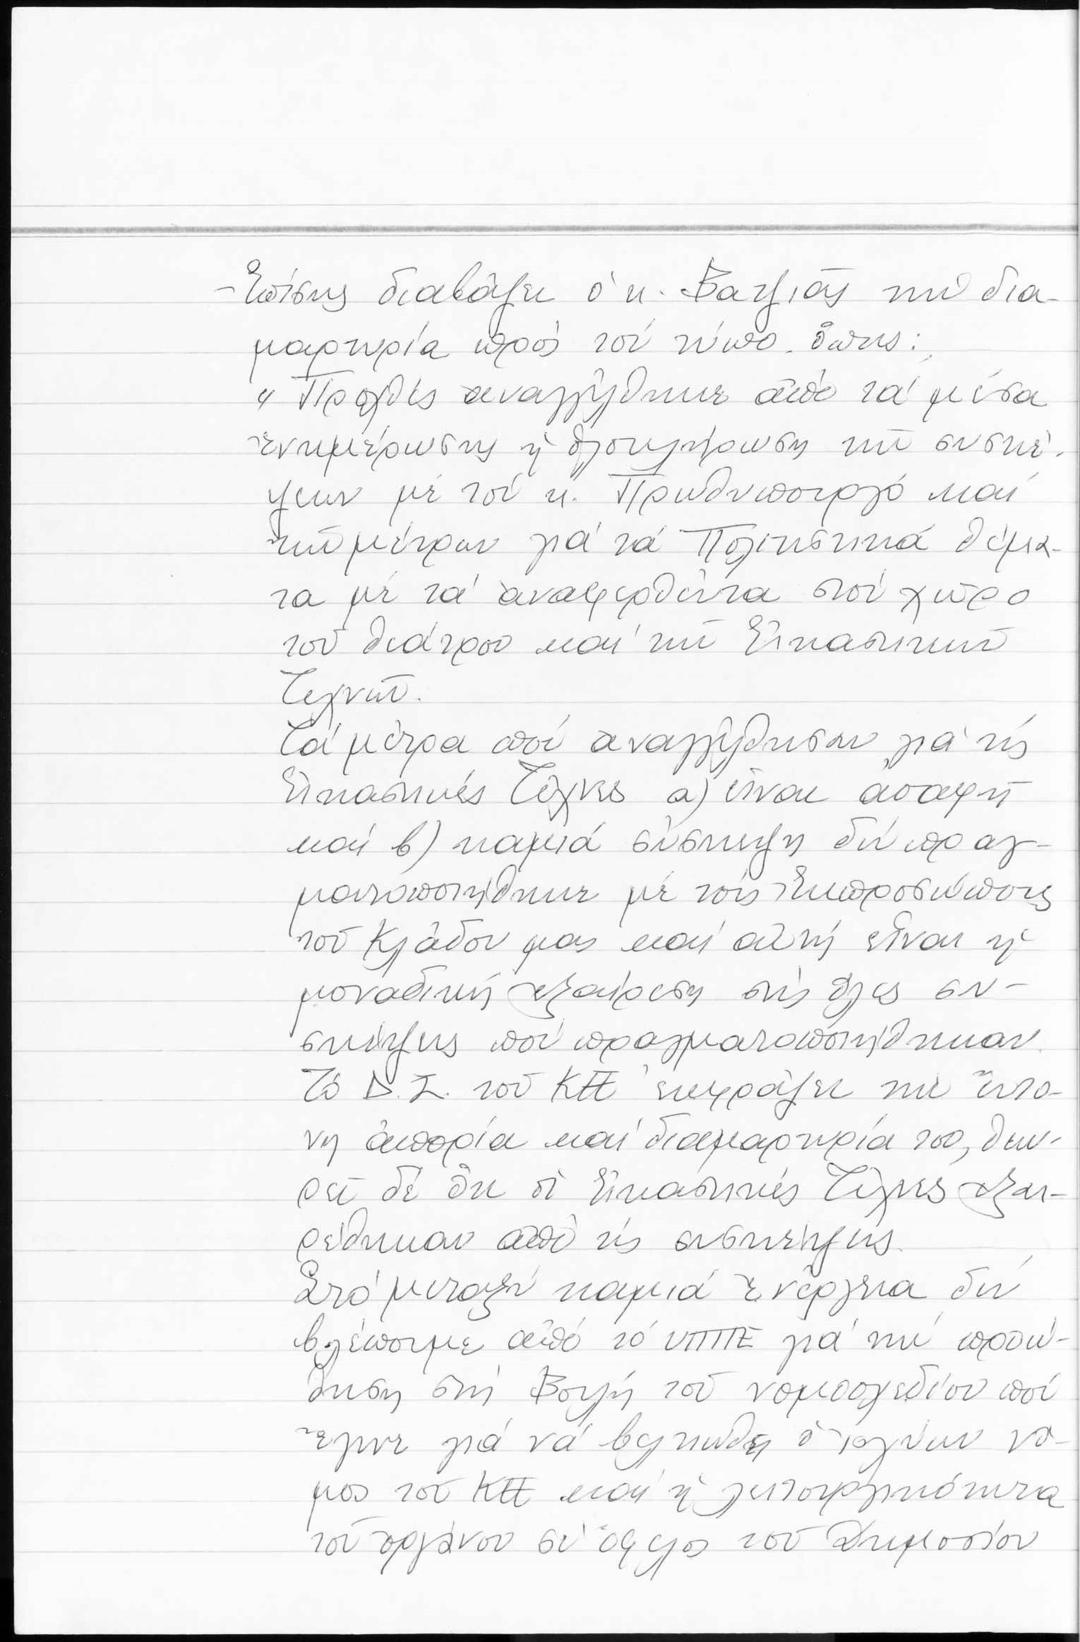 - Ἐπίσης διαβάζει ὁ κ. Βατζιᾶς τήν δια-
μαρτυρία πρός τόν τύπο. ὅπως:
" Προχθές ἀναγγέλθηκε ἀπό τά μέσα
ἐνημέρωσης ἡ ὁλοκλήρωση τῶν συσκέ-
ψεων μέ τόν κ. Πρωθυπουργό καί
τῶν μέτρων γιά τά Πολιτιστικά θέμα-
τα μέ τά ἀναφερθέντα στόν χῶρο
τοῦ θεάτρου καί τῶν Εἰκαστικῶν
Τεχνῶν.
Τά μέτρα πού ἀναγγέλθησαν γιά τίς
Εἰκαστικές Τέχνες α) εἶναι ἀσαφῆ
καί β) καμιά σύσκεψη δέν πραγ-
ματοποιήθηκε μέ τούς Ἐκπροσώπους
τοῦ Κλάδου μας καί αὐτή εἶναι ἡ
μοναδική ἐξαίρεση στίς ὅλες συ-
σκέψεις πού πραγματοποιήθηκαν.
Τό Δ.Σ. τοῦ ΚΤΕ ἐκφράζει τήν ἔντο-
νη ἀπορία καί διαμαρτυρία του, θεω-
ρεῖ δέ ὅτι οἱ Εἰκαστικές Τέχνες ἐξαι-
ρέθηκαν ἀπό τίς συσκέψεις.
Στό μεταξύ καμιά ἐνέργεια δέν
βλέπουμε ἀπό τό ΥΠΠΕ γιά τήν προώ-
θηση στή Βουλή τοῦ νομοσχεδίου πού
ἔγινε γιά νά βελτιωθεῖ ὁ ἰσχύων νό-
μος τοῦ ΚΤΕ καί ἡ λειτουργικότητα
τοῦ ὀργάνου σέ ὄφελος τοῦ Δημοσίου